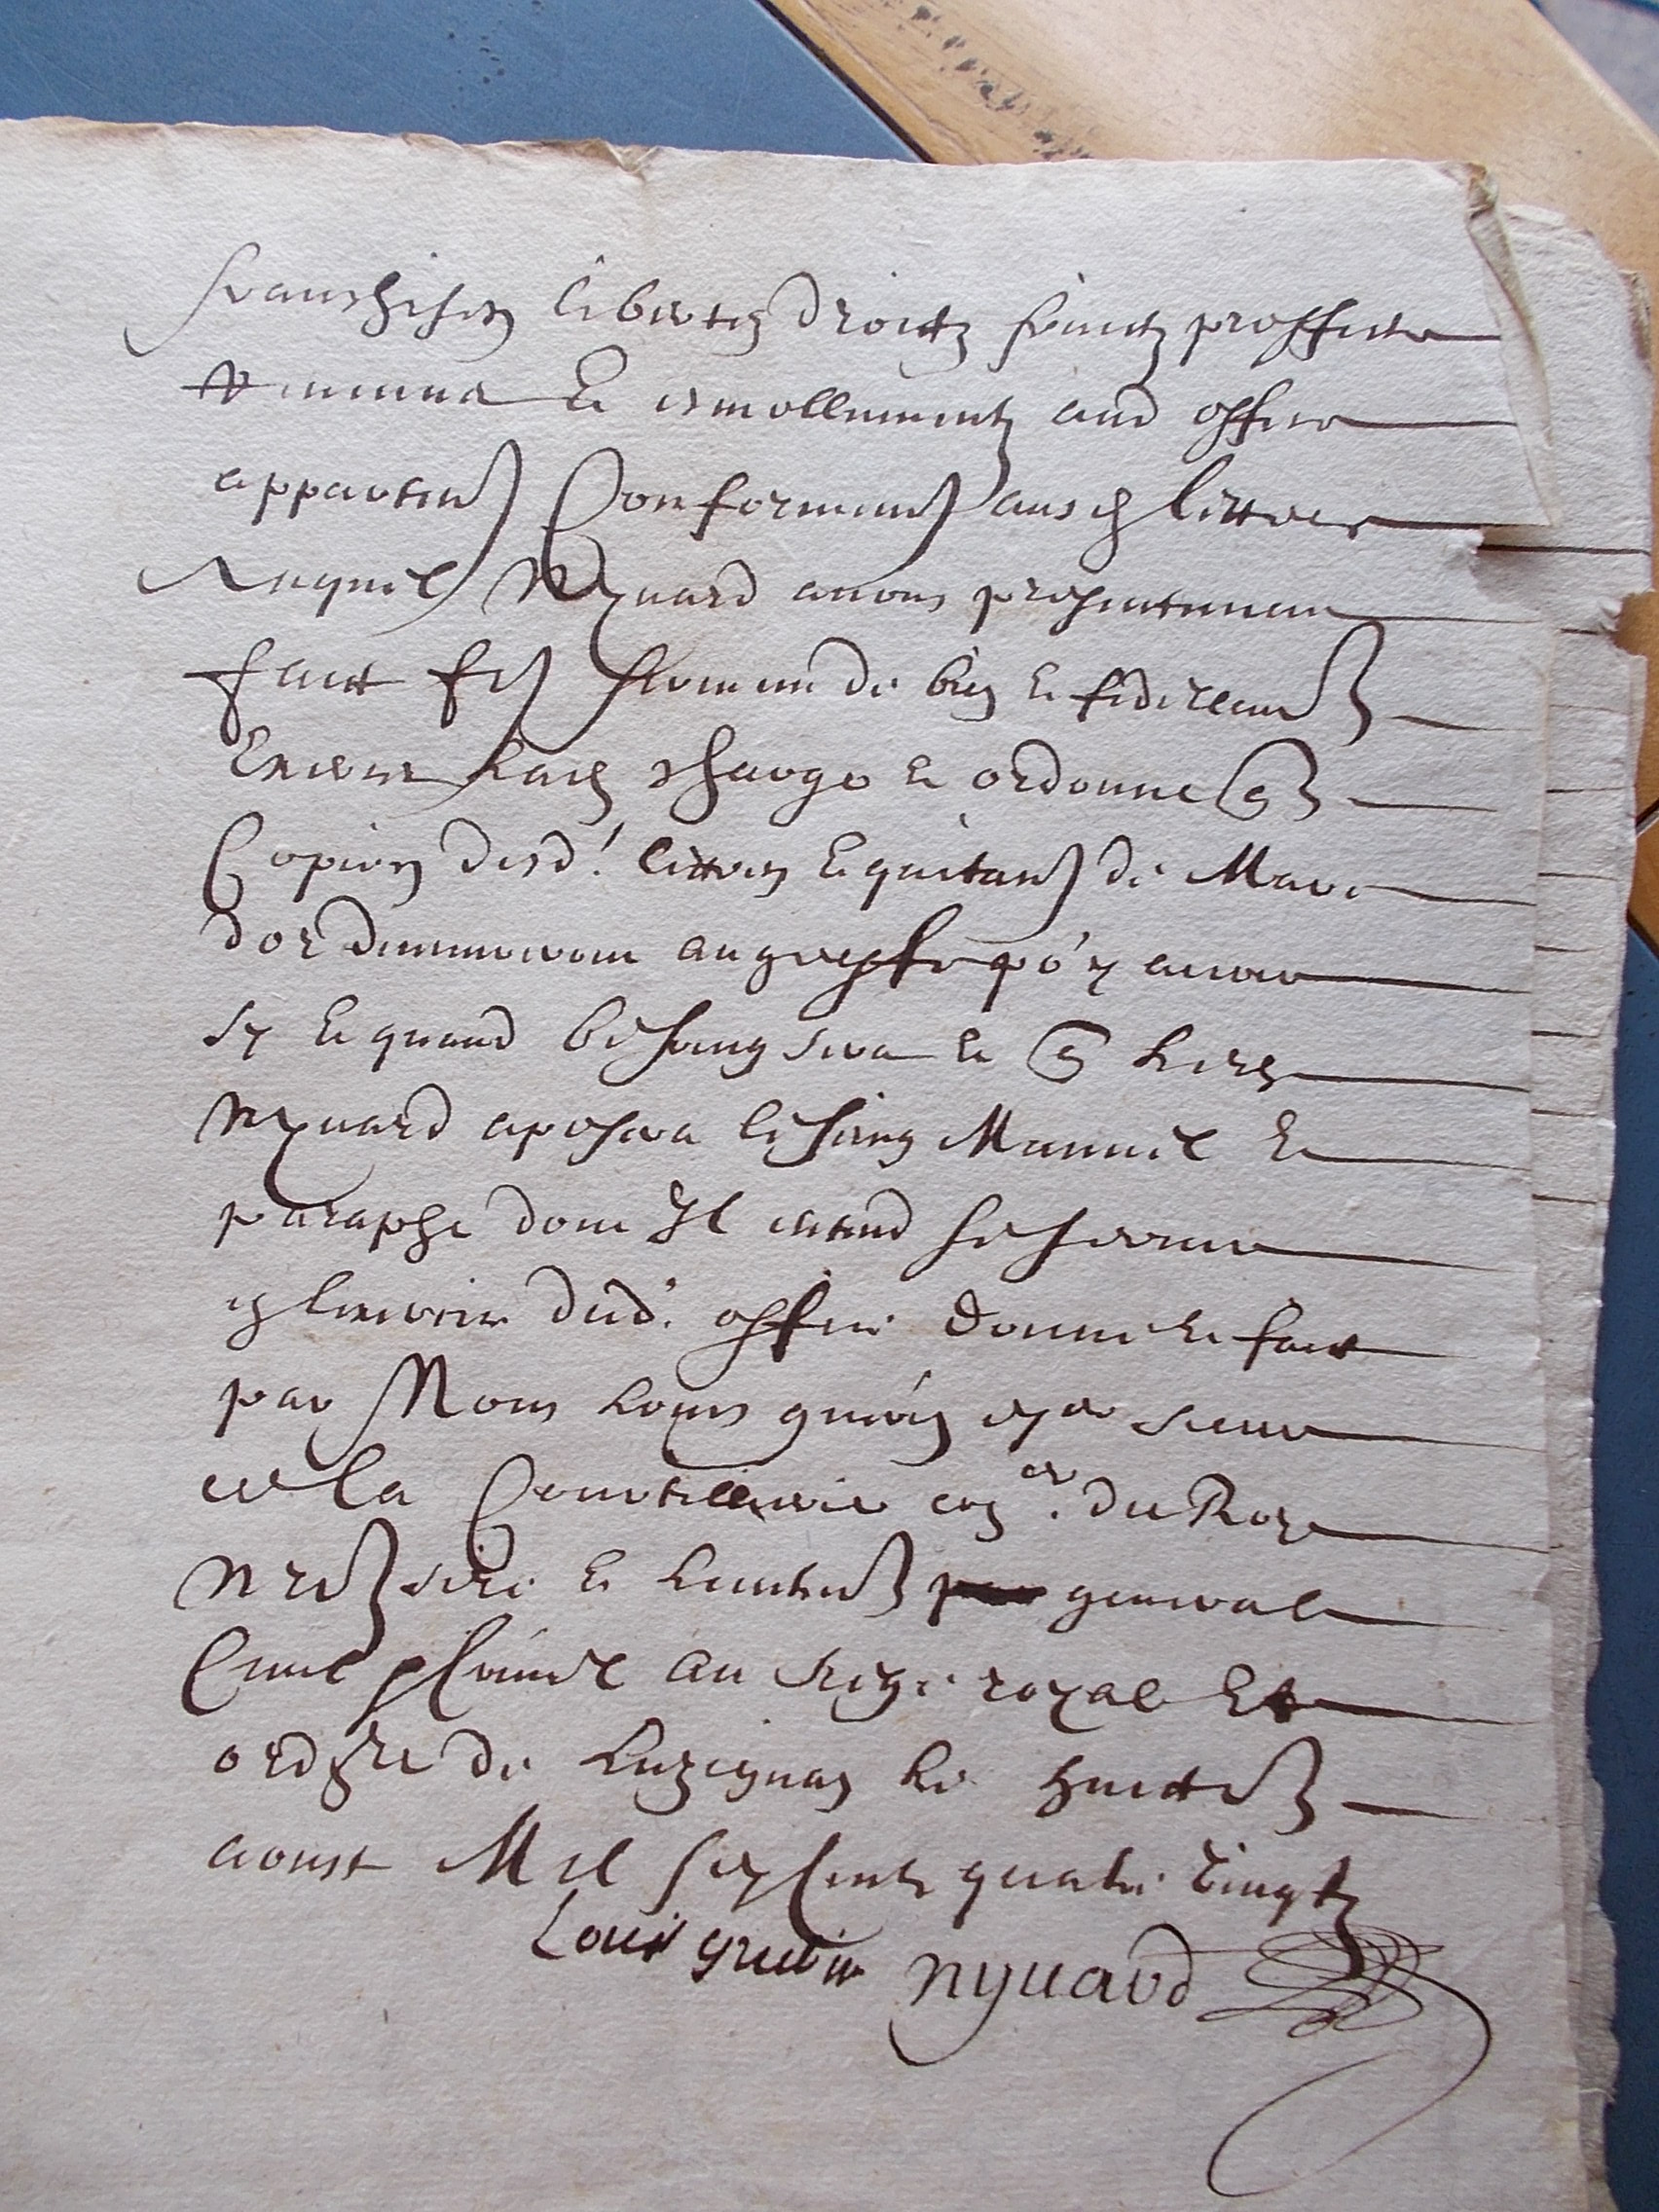 franchises libertez droictz fruictz proffictz
revenus et esmollumentz aud office
appartent Conformemt ausd lettres
duquel Nyvard avons presentement
faict fe serment de bien et fidellemt
exercer lad charge et ordonne que
Copies desd. lettres et quitance de Marc
dor demeureront au greffe po.r y avoir
sy et quand besoing sera et que led
Nyvard aposera le seing Manuel et
paraphe dont Il entend se servir
en lexercice dud. office donne et faict
par Nous Louys gruvin escer sieur
de la Courtillerie coner. du Roy
nre sire et lieutent general
Civil plusieurs au siege royal et
ordre de Luzignan le huictie
aoust Mil six cents quatre vingtz
Louis gruvin nyvard